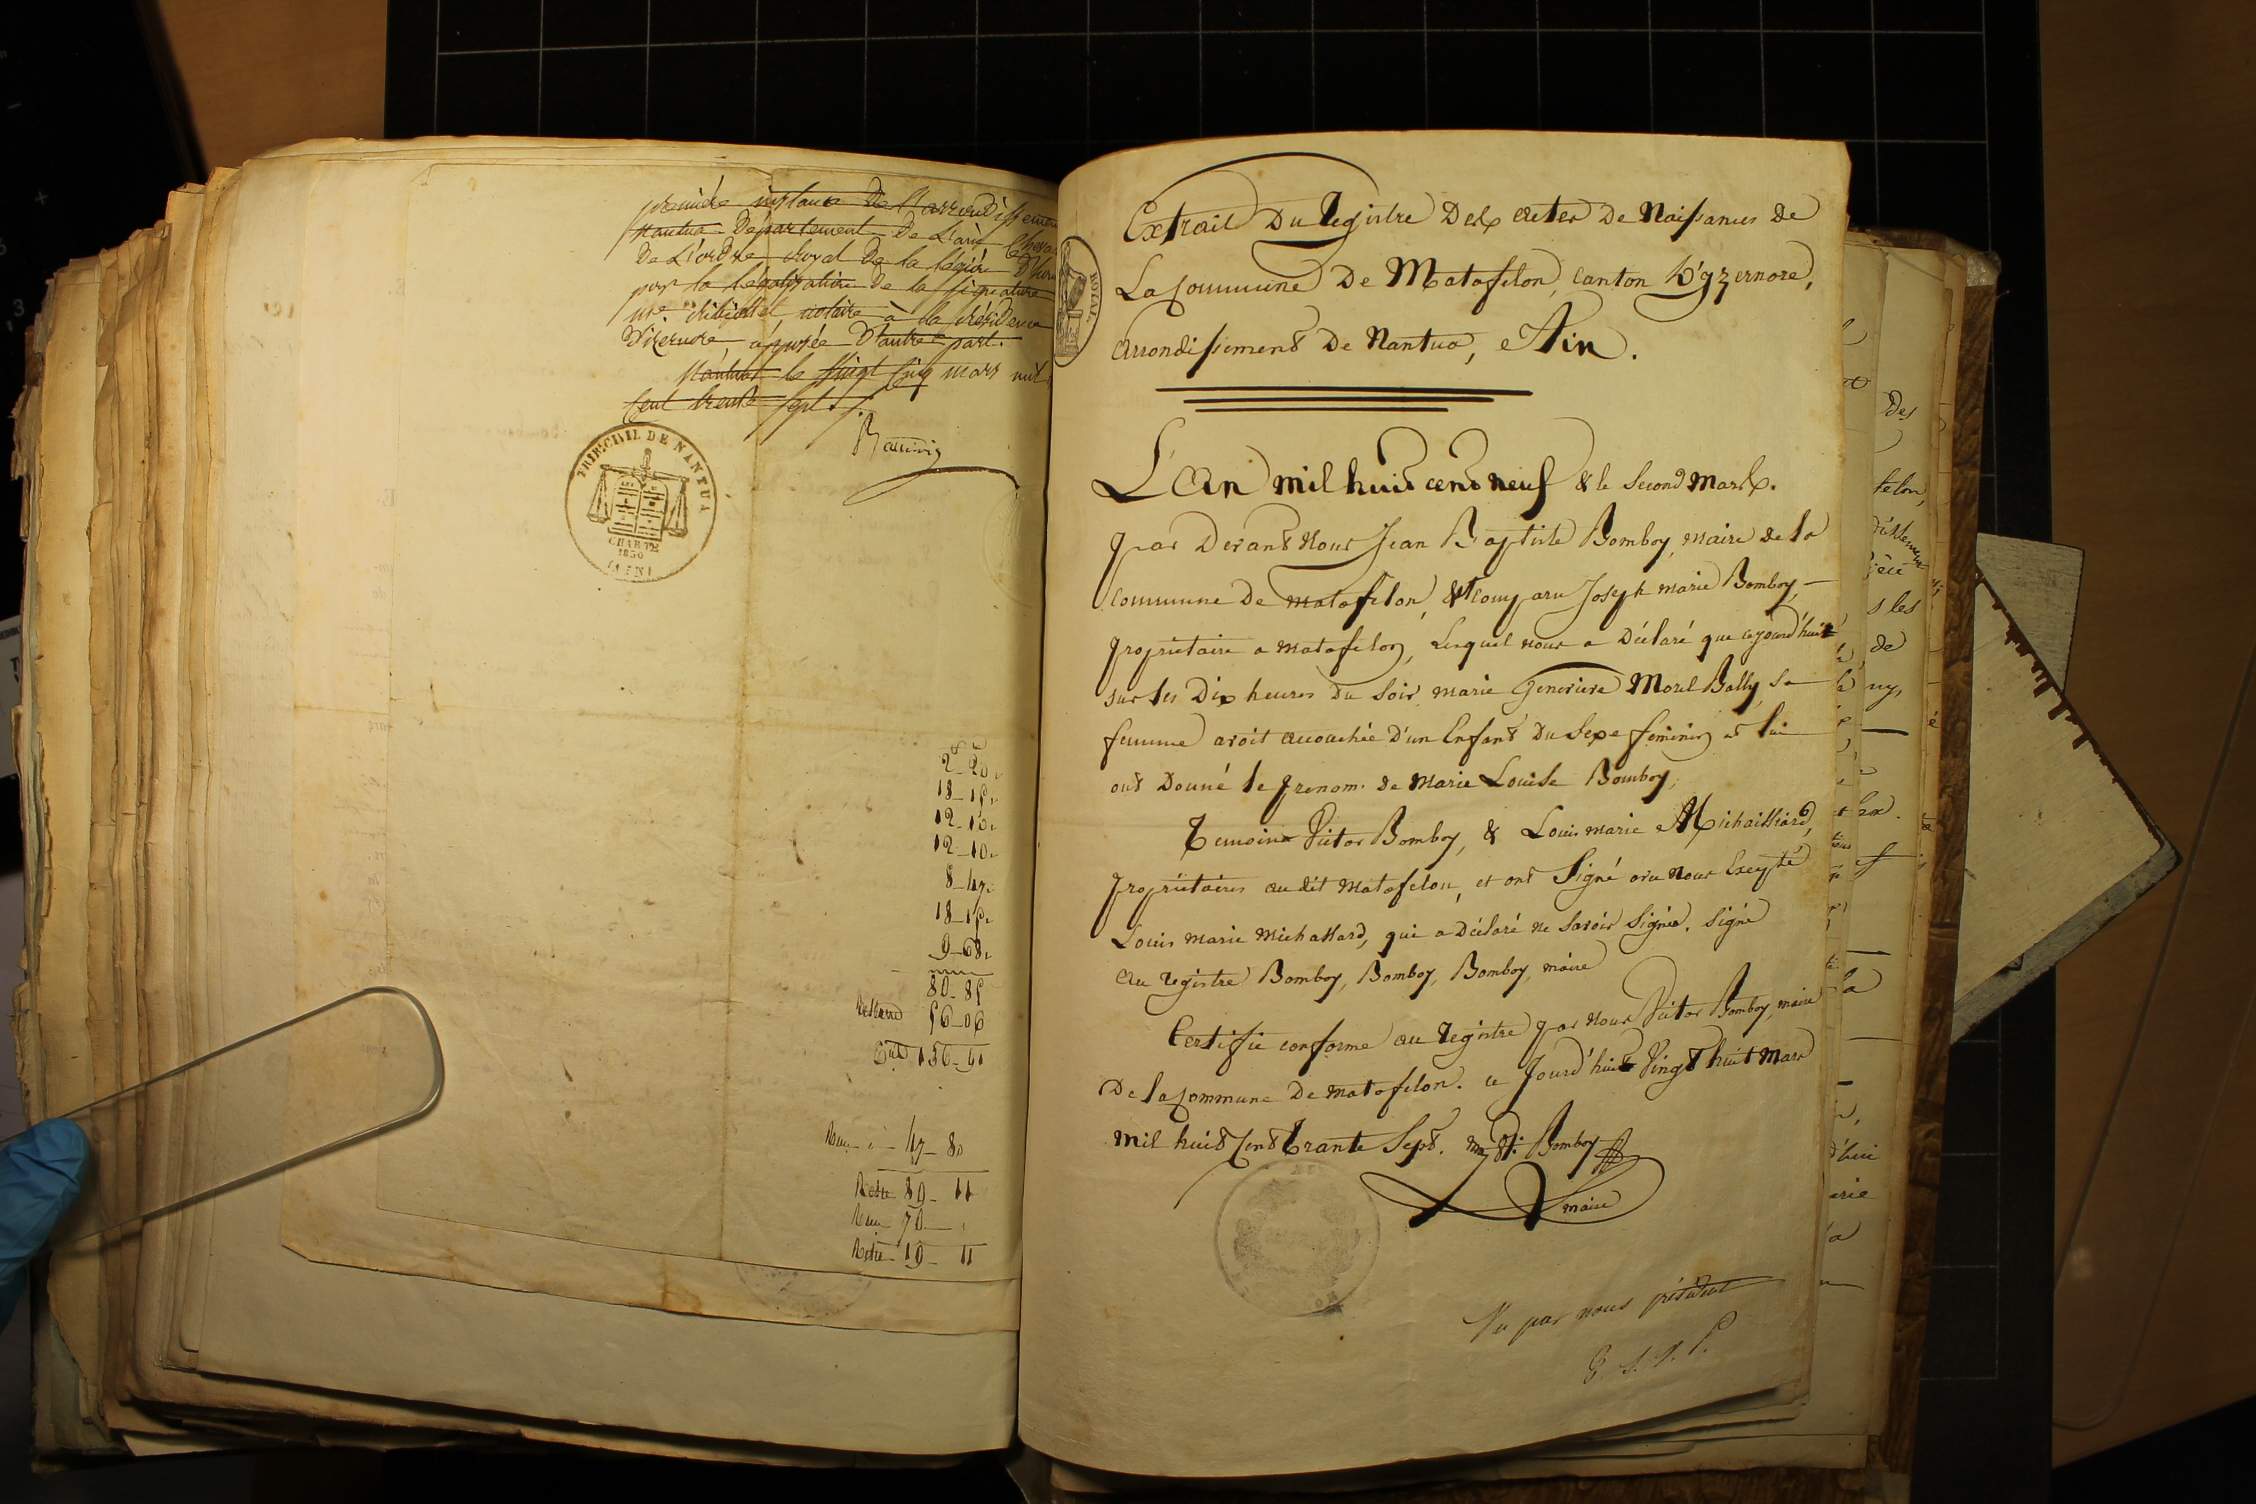 première instance de l'arrondissement
Nantua Département de L'ain Cheva
De L'ordre Royal de la légion D'hon
pour la légalisation de la signature
notaire à la résidence
D'izernore apposée D'autre part.
Nantua le vingt cinq mars mil
Cent trente sept
TRIB. CIVIL DE NANTUA
CHARTE
1830
(AIN)
2-20
18-15
12-10
12-10
8-47
18-15
9-68
80-85
56-06
136-91
47-80
Reste 89-11
70
Reste 19-11
ROYALE
Extrait Du Registre Des actes De Naissances de
La Commune De Matafelon, Canton D'yzernore,
arrondissement De Nantua, Ain.
L'An mil huit cent neuf & le second Mars.
par Devant Nous Jean Baptiste Bomboy, maire de la
Commune De matafelon, est comparu Joseph marie Bomboy,
propriétaire a matafelon, Lequel nous a Déclaré que cejourd'huit
sur les Dix heures Du soir, marie Genevieve Morel Bally, sa
femme avoit accouchée D'un Enfant Du Sexe feminin et lui
ont Donné le prenom de Marie Louise Bomboy.
Temoins Victor Bomboy, & Louis marie Michaillard,
propriétaires au dit Matafelon, et ont Signé avec Nous Excepté
Louis marie Michallard, qui a Déclaré ne savoir Signer. Signé
au registre Bomboy, Bomboy, Bomboy, maire
Certifie conforme au Registre par nous Victor Bomboy, maire
De la Commune De matafelon. ce Jourd'huit Vingt huit Mars
mil huit Cent Trante Sept. Bomboy
maire
Vu par nous président